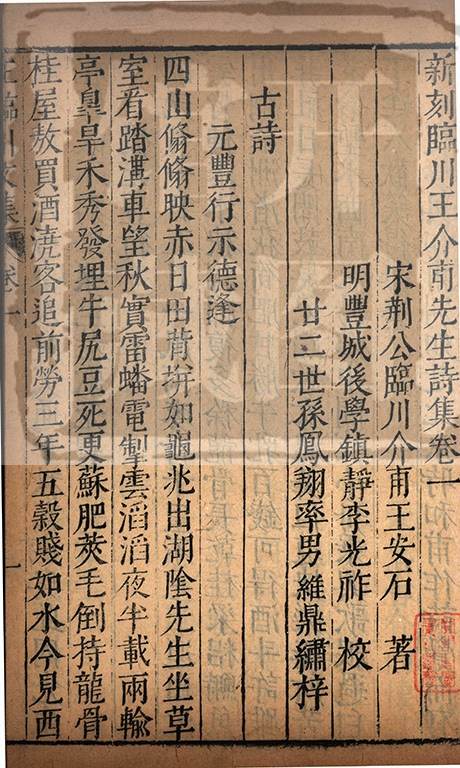 新刻臨川王介甫先生詩集卷一
宋荆公臨川介甫王安石 著
明豐城後學鎮靜李光祚 校
廿二世孫鳳翔率男維鼎繡梓
古詩
元豐行示德逢
四山翛翛映赤日田背拆如龜兆出湖陰先生坐草
室看踏溝車望秋實雷蟠電掣雲滔滔夜半載雨輸
亭臯旱禾秀發埋牛尻豆死更蘇肥莢毛倒持龍骨
桂屋敖買酒澆客追前勞三年五榖賤如水今見西
王臨川文集 卷一 一